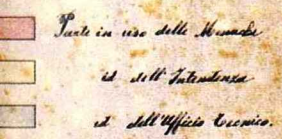 Parte in uso delle Monache
id dell'Intendenza
id dell'Ufficio tecnico.